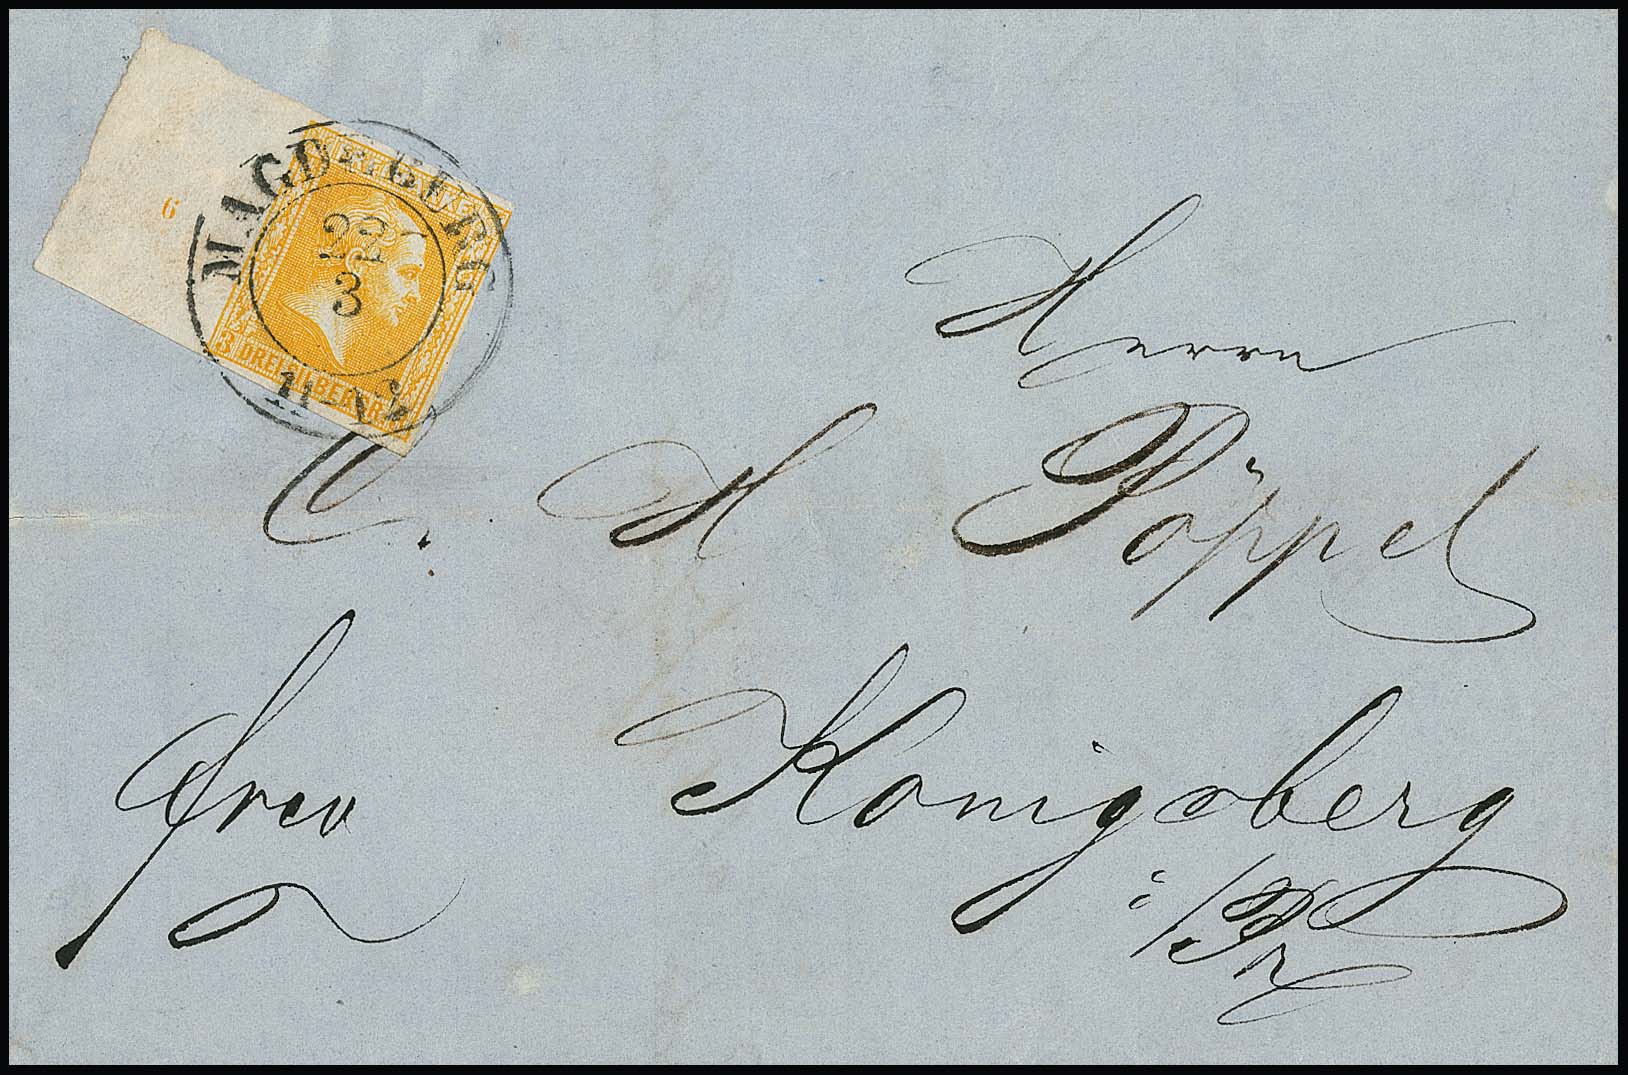 6
MAGDEBURG
22
3
3 DREI SILBERGR.
Herrn
C. H Pöppel
frco
Königsberg
i/Pr